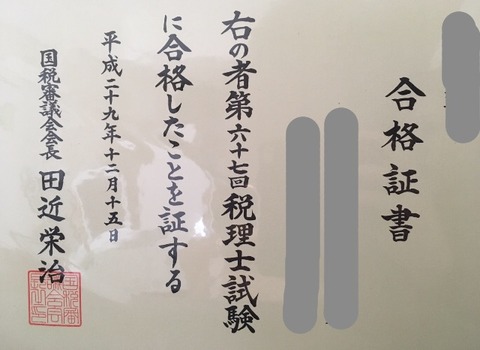 合格証書
右の者第六十七回税理士試験
に合格したことを証する
平成二十九年十二月十五日
国税審議会会長 田近栄治